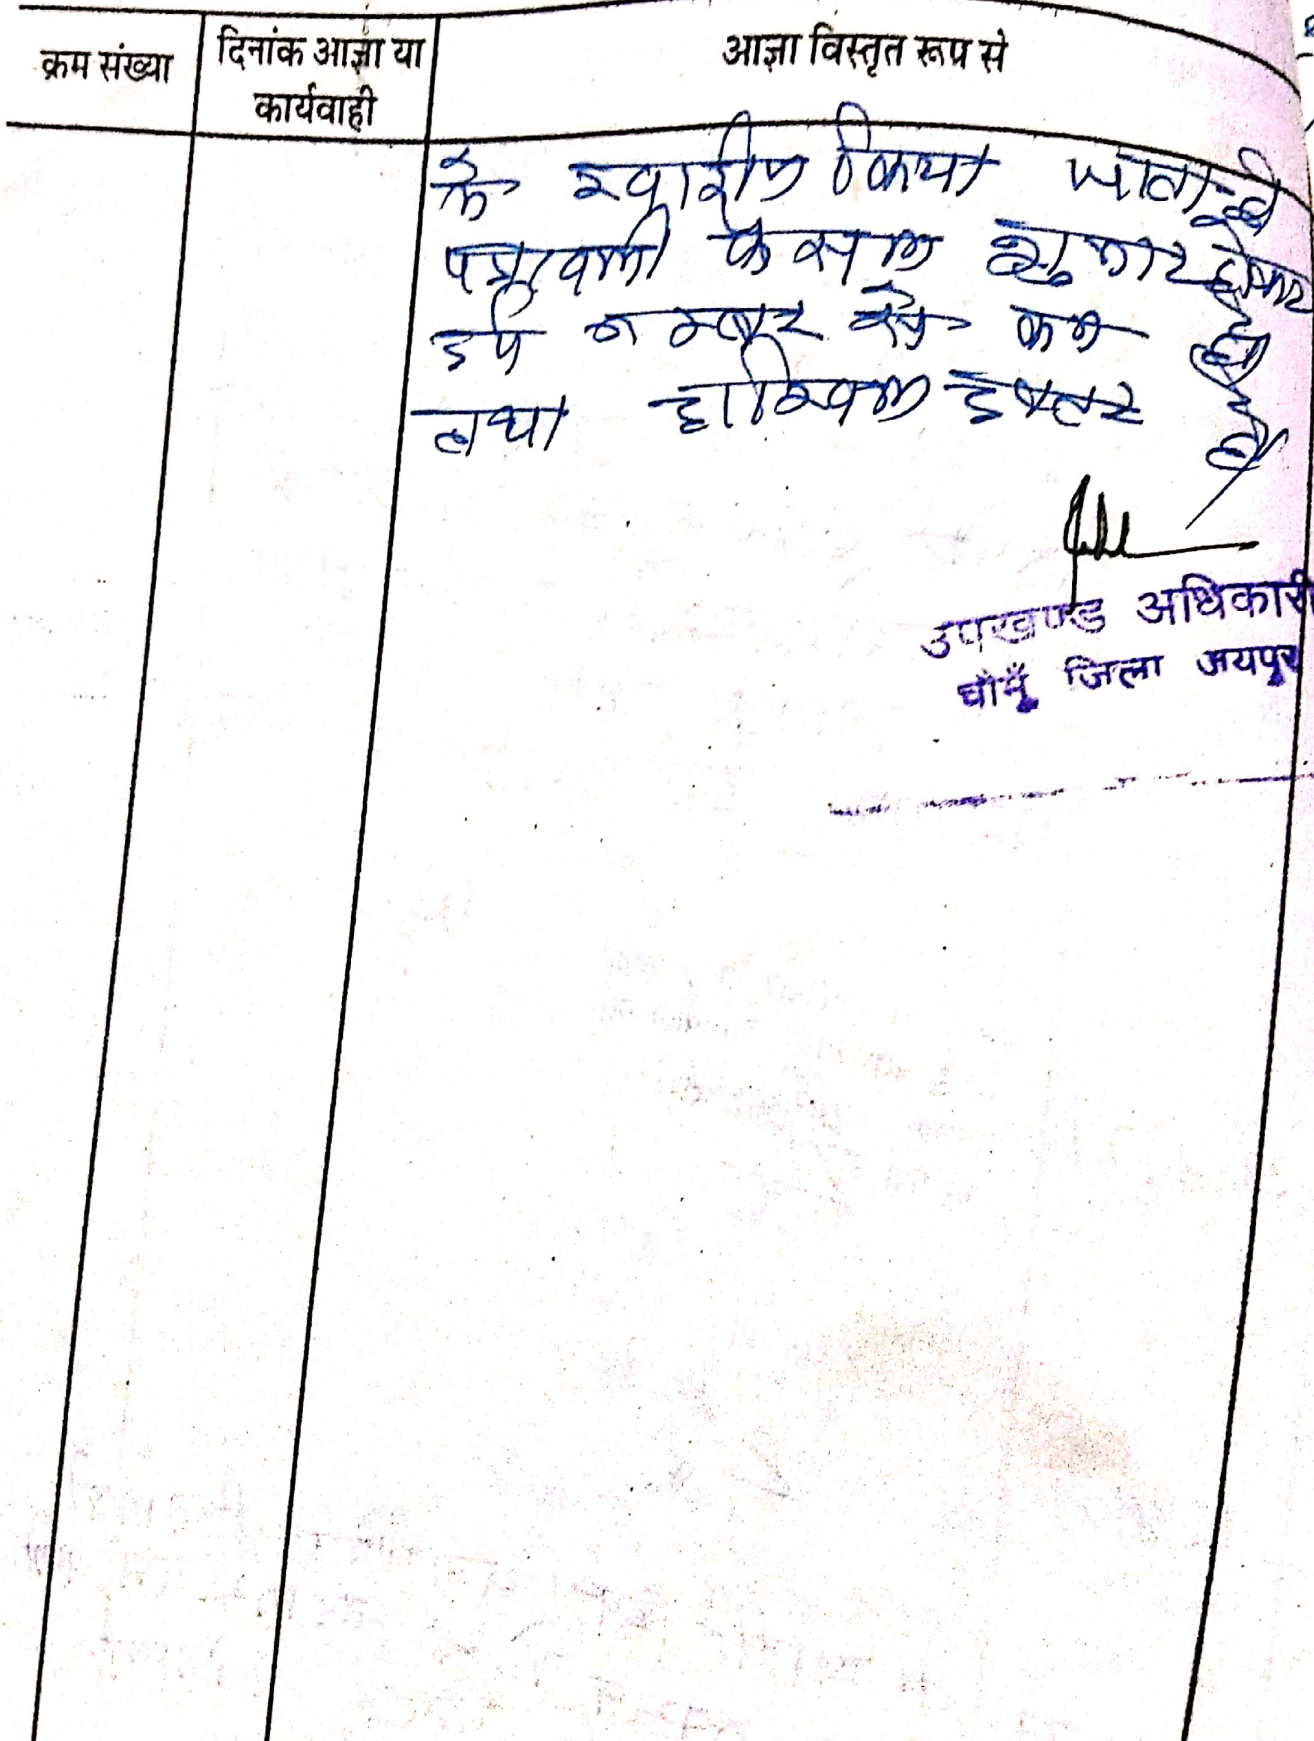 क्रम संख्या
दिनांक आज्ञा या
कार्यवाही
आज्ञा विस्तृत रूप से
के खारीज किया जाता है
पत्रावली फैसल शुमार होकर
दर्ज नम्बर से कम हो
तथा दाखिल दफ्तर हो
उपखण्ड अधिकारी
चौमूँ जिला जयपुर